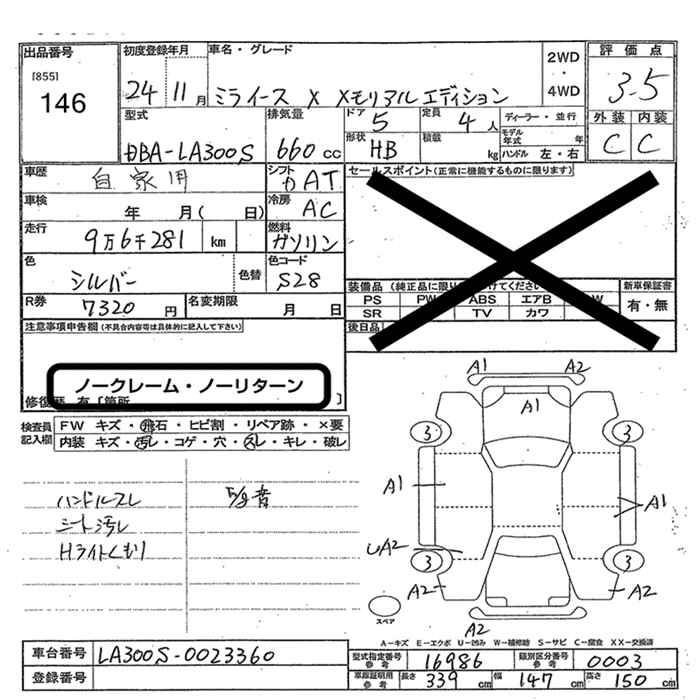 出品番号 初度登録年月 車名・グレード 評価点
[855] 146
24 11月 ミライース X メモリアルエディション 2WD・4WD 3.5
型式 排気量 ドア 5 定員 4人 ディーラー・並行 外装 内装
DBA-LA300S 660cc 形状 HB 積載 kg モデル年式 年 ハンドル 左・右 C C
車歴 自家用 シフト AT セールスポイント(正常に機能するものに限ります)
車検 年 月( 日) 冷房 AC
走行 9万6千281 km 燃料 ガソリン
色 シルバー 色替 色コード S28
装備品 (純正品に限り 付けてください) 新車保証書
PS PW ABS エアB W 有・無
SR TV カワ
R券 7320円 名変期限 月 日 後日品
注意事項申告欄(不具合内容等は具体的に記入して下さい)
ノークレーム・ノーリターン
修復歴 有〔箇所 〕
検査員記入欄 FW キズ・飛石・ヒビ割・リペア跡・×要
内装 キズ・汚レ・コゲ・穴・スレ・キレ・破レ
A1 A2
A1
3 3
A1 A1
UA2
3 3
A2 A2
A2
スペア
ハンドルスレ
シート汚レ
Hライトくもり
A-キズ E-エクボ U-凹み W-補修跡 S-サビ C-腐食 XX-交換済
車台番号 LA300S-0023360 型式指定番号参考 16986 類別区分番号参考 0003
登録番号 車庫証明用参考 長さ 339cm 幅 147cm 高さ 150cm